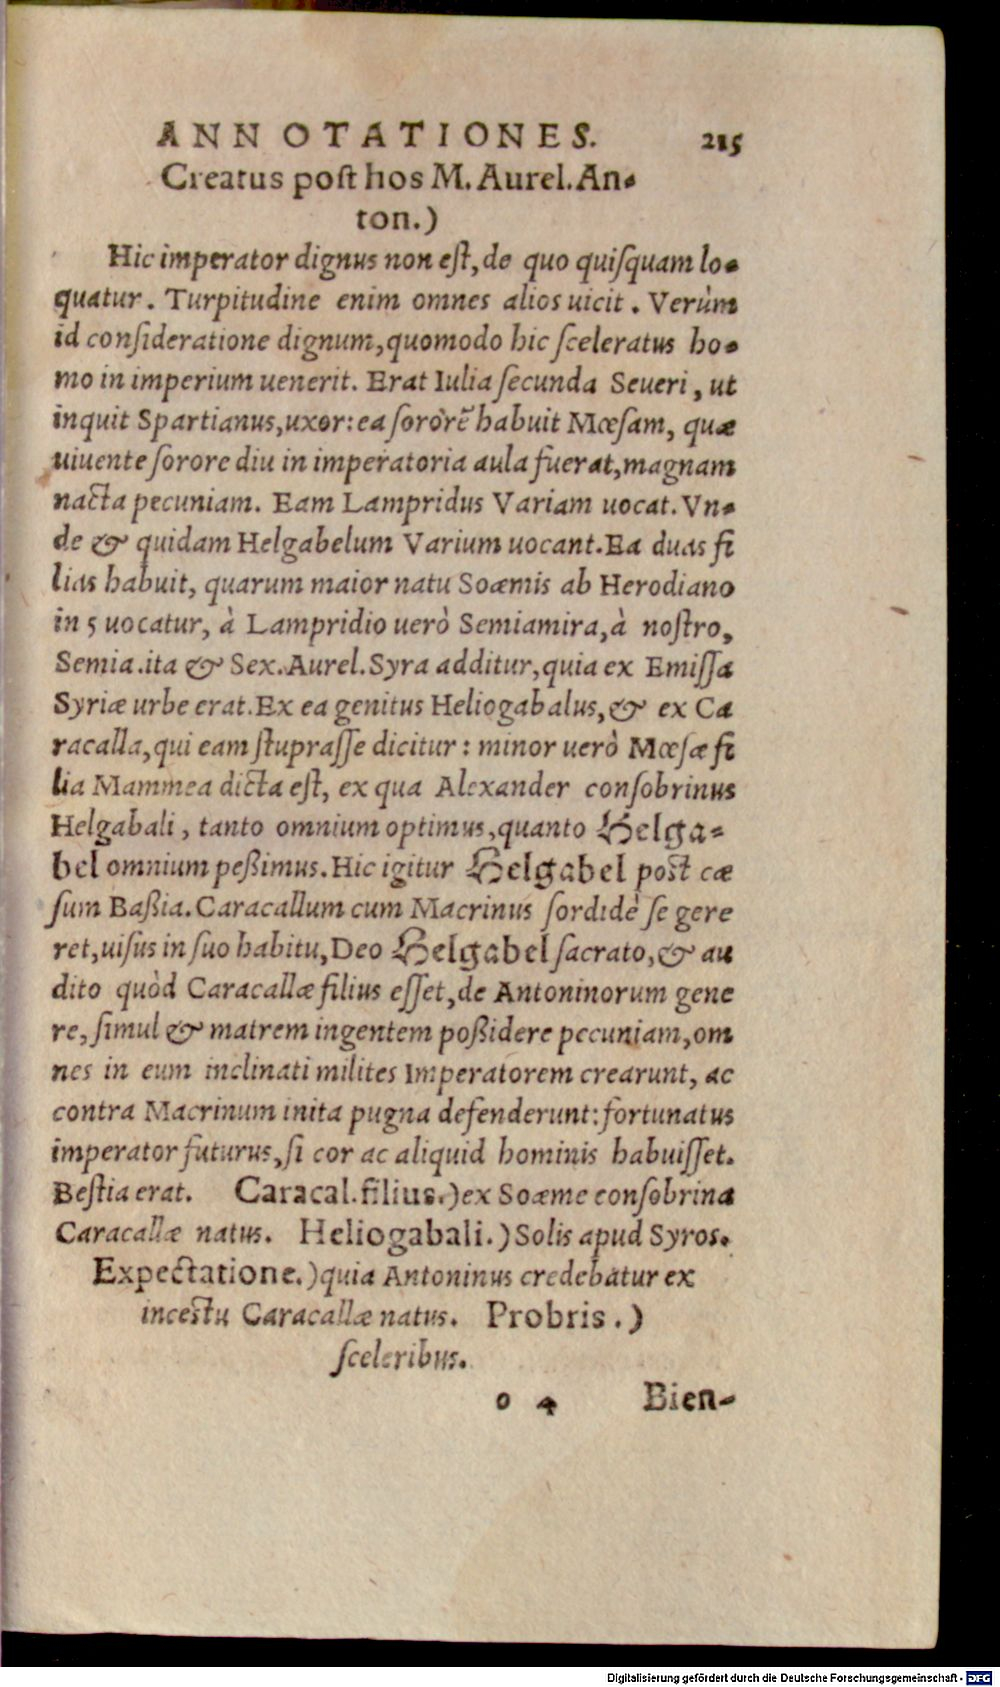 ANNOTATIONES. 215
Creatus post hos M. Aurel. An-
ton.)
Hic imperator dignus non est, de quo quisquam lo-
quatur. Turpitudine enim omnes alios uicit. Verùm
id consideratione dignum, quomodo hic sceleratus ho-
mo in imperium uenerit. Erat Iulia secunda Seueri, ut
inquit Spartianus, uxor: ea sororẽ habuit Mœsam, quæ
uiuente sorore diu in imperatoria aula fuerat, magnam
nacta pecuniam. Eam Lampridus Variam uocat. Vn-
de & quidam Helgabelum Varium uocant. Ea duas fi
lias habuit, quarum maior natu Soæmis ab Herodiano
in 5 uocatur, à Lampridio uerò Semiamira, à nostro,
Semia. ita & Sex. Aurel. Syra additur, quia ex Emissa
Syriæ urbe erat. Ex ea genitus Heliogabalus, & ex Ca
racalla, qui eam stuprasse dicitur: minor uerò Mœsæ fi
lia Mammea dicta est, ex qua Alexander consobrinus
Helgabali, tanto omnium optimus, quanto Helga-
bel omnium peßimus. Hic igitur Helgabel post cæ
sum Baßia. Caracallum cum Macrinus sordidè se gere
ret, uisus in suo habitu, Deo Helgabel sacrato, & au
dito quòd Caracallæ filius esset, de Antoninorum gene
re, simul & matrem ingentem poßidere pecuniam, om
nes in eum inclinati milites Imperatorem crearunt, ac
contra Macrinum inita pugna defenderunt: fortunatus
imperator futurus, si cor ac aliquid hominis habuisset.
Bestia erat. Caracal. filius.) ex Soæme consobrina
Caracallæ natus. Heliogabali.) Solis apud Syros.
Expectatione.) quia Antoninus credebatur ex
incestu Caracallæ natus. Probris.)
sceleribus.
o 4 Bien-
Digitalisierung gefördert durch die Deutsche Forschungsgemeinschaft - DFG